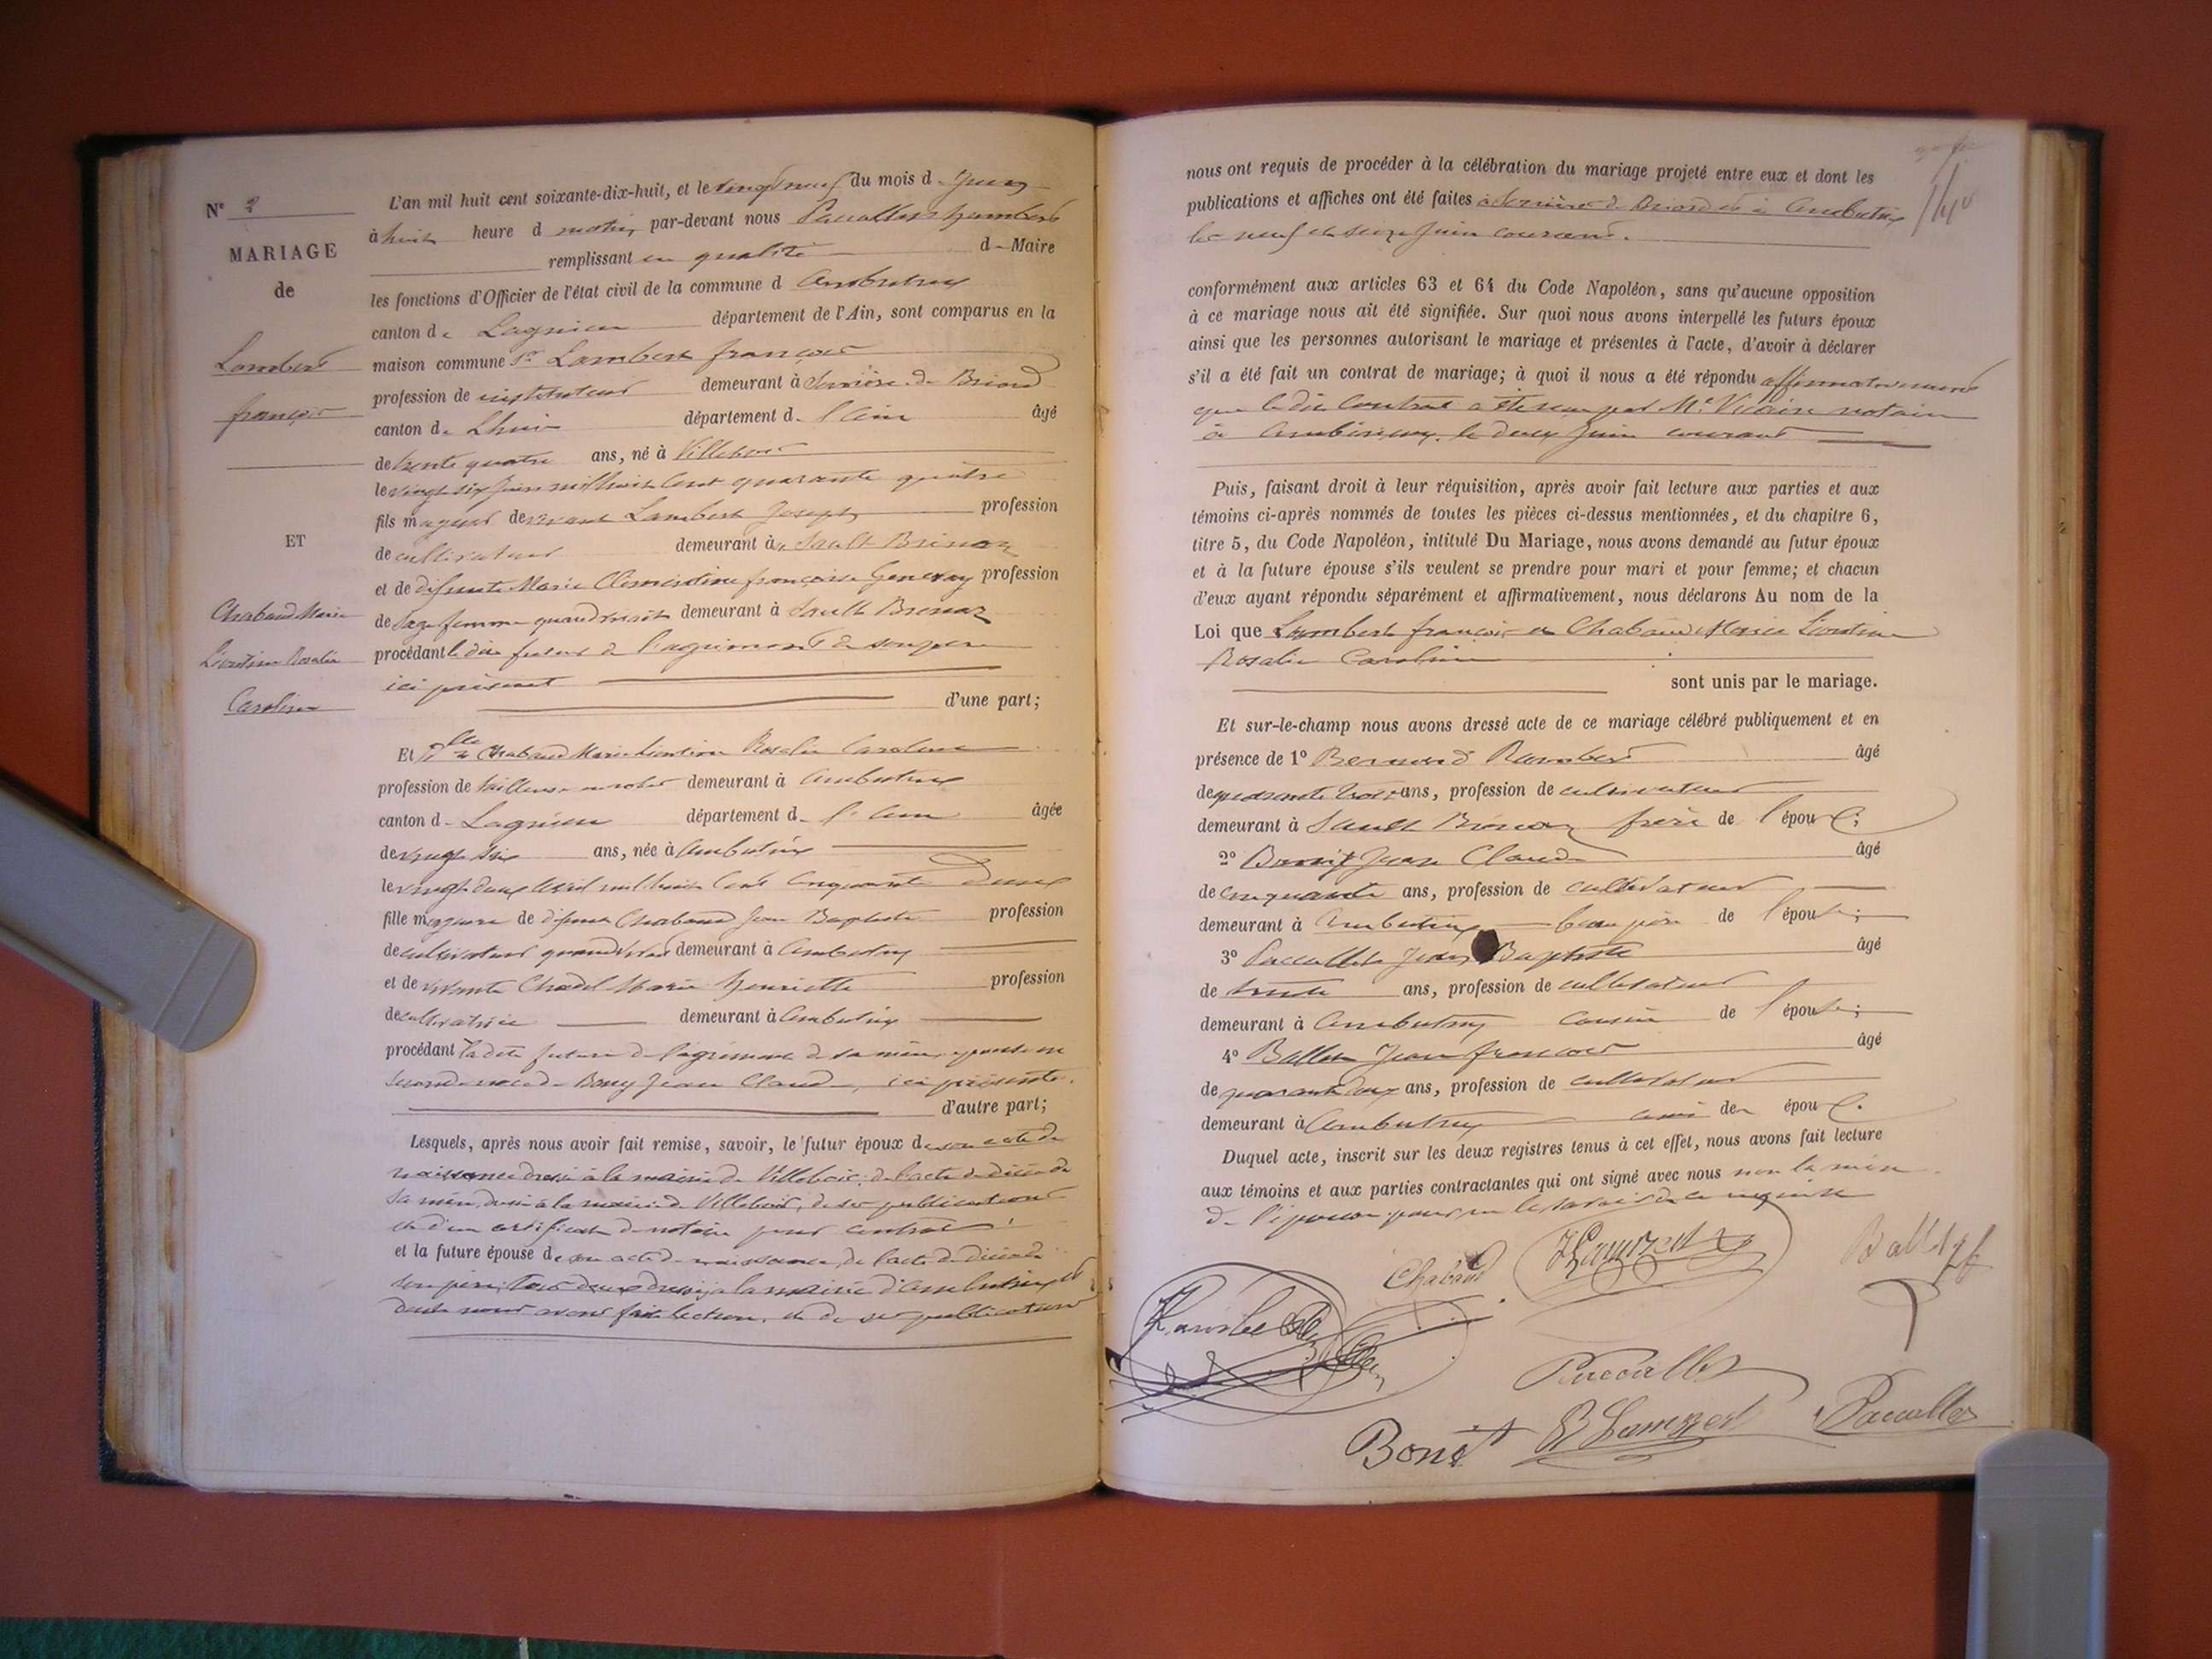 N° 
MARIAGE
de
Lambert
françois
ET
Chabaud Marie
Léontine Rosalie
Caroline
L'an mil huit cent soixante-dix-huit, et le vingt neuf du mois d. Juin
à huit heure d matin par-devant nous Paccallet humbert
remplissant en qualité d- Maire
les fonctions d'Officier de l'état civil de la commune d Ambutrix
canton de Lagnieu département de l'Ain, sont comparus en la
maison commune Sr Lambert françois
profession de instituteur demeurant à Serrière de Briord
canton de Lhuis département d. l'Ain âgé
de trente quatre ans, né à Villebois
le vingt six Juin mil huit Cent quarante quatre
fils majeur de vivant Lambert Joseph profession
de cultivateur demeurant à Sault Brénaz
et de défunte Marie Clémentine françoise Genevay profession
de Sage femme quand vivait demeurant à Sault Brenaz
procédant le dit futur de l'agrément de son père
ici présent
d'une part;
Et Dlle Chabaud Marie Léontine Rosalie Caroline
profession de tailleuse en robes demeurant à Ambutrix
canton d- Lagnieu département d- l'Ain âgée
de vingt six ans, née à Ambutrix
le vingt deux Avril mil huit Cent Cinquante Deux
fille majeure de défunt Chabaud Jean Baptiste profession
de cultivateur quand vivait demeurant à Ambutrix
et de vivante Chadel Marie henriette profession
de cultivatrice demeurant à Ambutrix
procédant la dite future de l'agrément de sa mère épouse en
secondes noces de Bony Jean Claude, ici présente.
d'autre part;
Lesquels, après nous avoir fait remise, savoir, le futur époux de son acte de
naissance dressé à la mairie de Villebois; de l'acte de décès de
sa mère, dressé à la mairie de Villebois, de ses publications
et d'un certificat de notaire pour contrat
et la future épouse de son acte de naissance, de l'acte de décès de
son père, tous deux dressés à la mairie d'Ambutrix et
dont nous avons fait lecture, et de ses publications
nous ont requis de procéder à la célébration du mariage projeté entre eux et dont les
publications et affiches ont été faites à Serrières de Briord et à Ambutrix
les neuf et seize Juin courant.
conformément aux articles 63 et 64 du Code Napoléon, sans qu'aucune opposition
à ce mariage nous ait été signifiée. Sur quoi nous avons interpellé les futurs époux
ainsi que les personnes autorisant le mariage et présentes à l'acte, d'avoir à déclarer
s'il a été fait un contrat de mariage; à quoi il nous a été répondu affirmativement
que le dit Contrat a été reçu par Me Vicaire notaire
à Ambérieux, le deux Juin courant
Puis, faisant droit à leur réquisition, après avoir fait lecture aux parties et aux
témoins ci-après nommés de toutes les pièces ci-dessus mentionnées, et du chapitre 6,
titre 5, du Code Napoléon, intitulé Du Mariage, nous avons demandé au futur époux
et à la future épouse s'ils veulent se prendre pour mari et pour femme; et chacun
d'eux ayant répondu séparément et affirmativement, nous déclarons Au nom de la
Loi que Lambert françois et Chabaud Marie Léontine
Rosalie Caroline
sont unis par le mariage.
Et sur-le-champ nous avons dressé acte de ce mariage célébré publiquement et en
présence de 1° Bernard Rambert âgé
de quarante trois ans, profession de cultivateur
demeurant à Sault Brénaz frère de l'époux;
2° Jean Claude âgé
de cinquante ans, profession de cultivateur
demeurant à Ambutrix beau père de l'épouse;
3° Paccallet Jean Baptiste âgé
de trente ans, profession de cultivateur
demeurant à Ambutrix cousin de l'épouse;
4° Ballet Jean françois âgé
de quarante deux ans, profession de cultivateur
demeurant à Ambutrix ami des époux.
Duquel acte, inscrit sur les deux registres tenus à cet effet, nous avons fait lecture
aux témoins et aux parties contractantes qui ont signé avec nous non la mère
de l'épouse pour ne le savoir de ce requise
Chabaud
Ballet jf
Paccallet
Paccallet